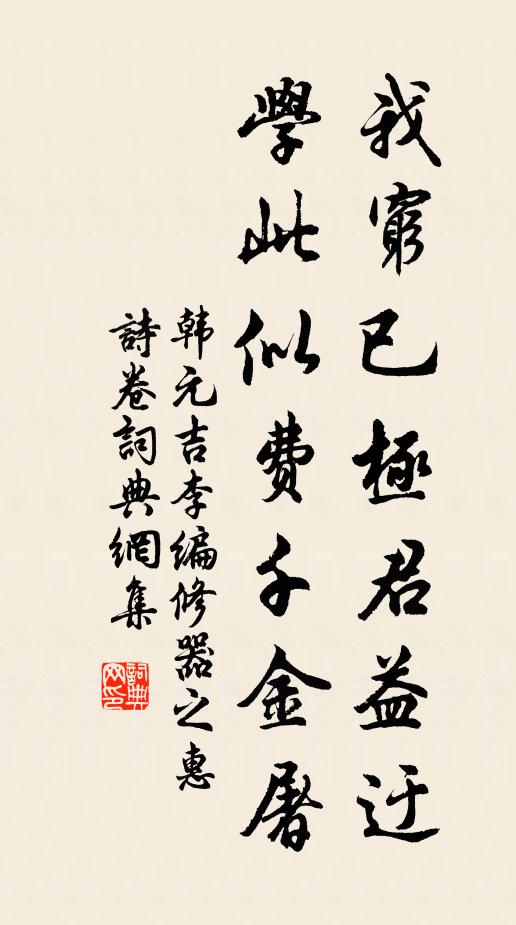 我窮已極君益迂
學此似費千金屠
韩元吉李编修器之惠
詩卷詞典網集
詞典
网印